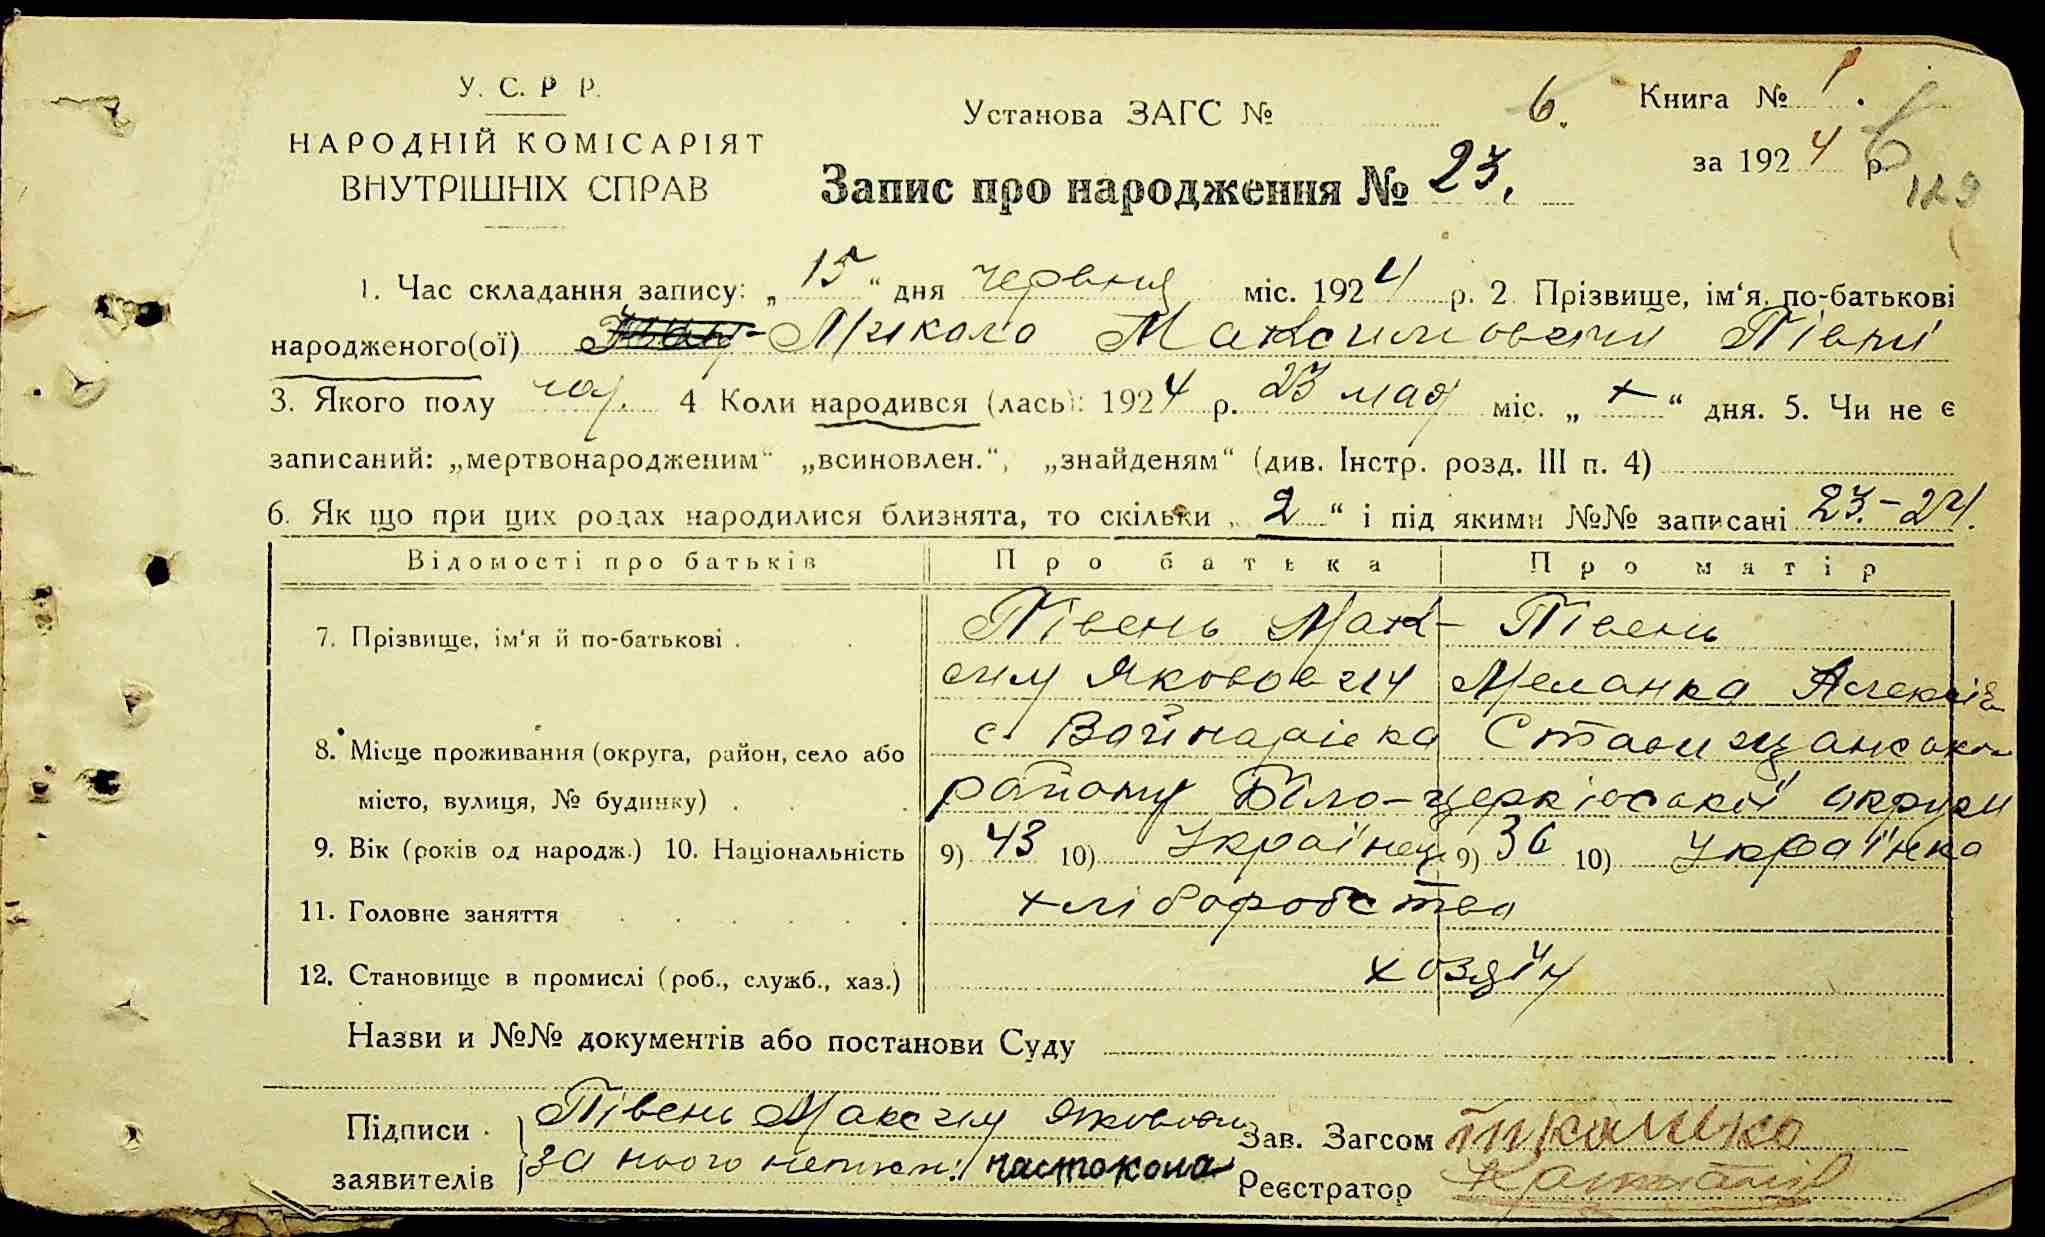 У. С. Р Р.
НАРОДНІЙ КОМІСАРІЯТ
ВНУТРІШНІХ СПРАВ
Установа ЗАГС № 6.
Книга № 1.
за 1924 р.
6
129
Запис про народження № 23.
1. Час складання запису: „15“ дня червня міс. 1924 р. 2. Прізвище, ім‘я, по-батькові
народженого(ої) Микола Максимович Півні
3. Якого полу чол. 4 Коли народився (лась): 1924 р. 23 мая міс. „ + “ дня. 5. Чи не є
записаний: „мертвонародженим“ „всиновлен.“, „знайденям“ (див. Інстр. розд. III п. 4)
6. Як що при цих родах народилися близнята, то скільки „ 2 “ і під якими №№ записані 23.-24.
Відомості про батьків Про батька Про матір
7. Прізвище, ім‘я й по-батькові . Півень Мак- Півень
сим Яковович Меланка Алексіів
8. Місце проживання (округа, район, село або с. Войнарівка Ставищансько
місто, вулиця, № будинку) . району Біло-церківської округи
9. Вік (років од народж.) 10. Національність 9) 43 10) Українец 9) 36 10) Українка
11. Головне заняття хліборобство
12. Становище в промислі (роб., служб., хаз.) хозяїн
Назви и №№ документів або постанови Суду
Підписи Півень Максим Яковович Зав. Загсом
заявителів За нього неписм: Реєстратор